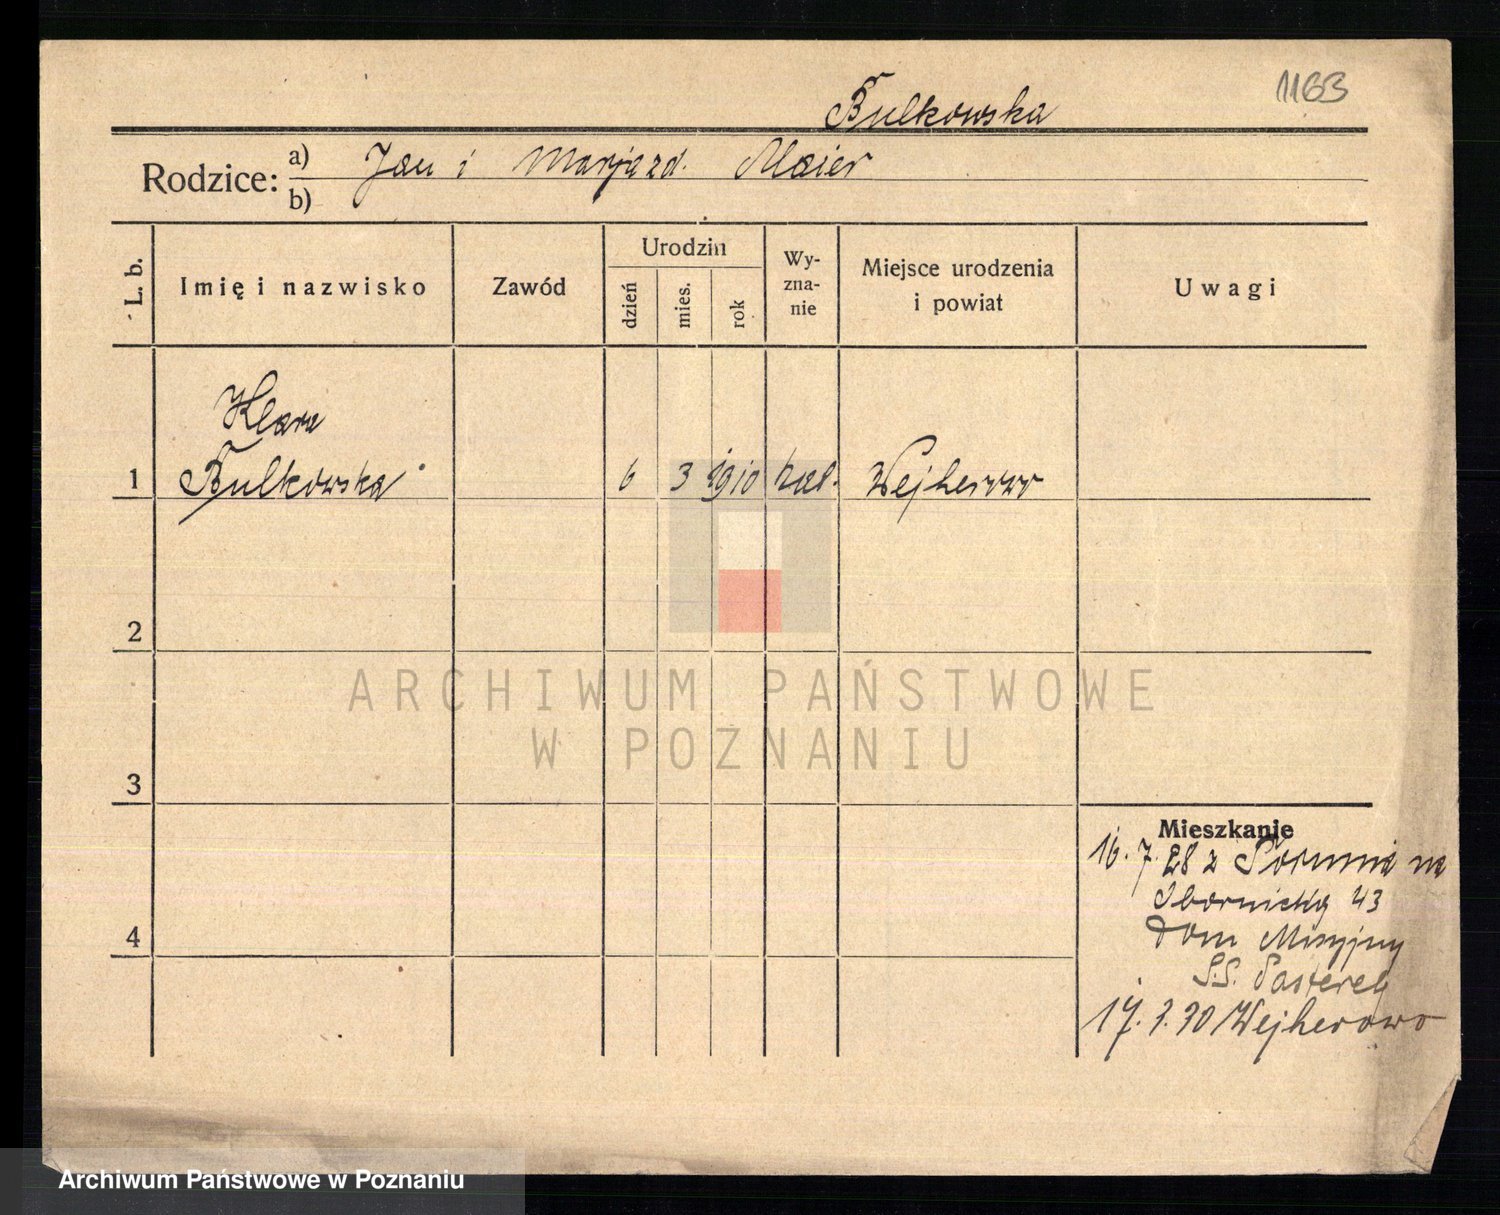 1163
Bulkowska
Rodzice: a) Jan i Marja zd. Maier
b)
L. b.
Imię i nazwisko
Zawód
Urodzin
dzień
mies.
rok
Wy-
zna-
nie
Miejsce urodzenia
i powiat
Uwagi
Klara
1 Bulkowska 6 3 1910 kat. Wejherowo
2
3
4
Mieszkanie
16.7.28 z Torunia na
Obornicką 43
Dom Misyjny
S.S. Pasterek
17.3.30 Wejherowo
ARCHIWUM PAŃSTWOWE
W POZNANIU
Archiwum Państwowe w Poznaniu